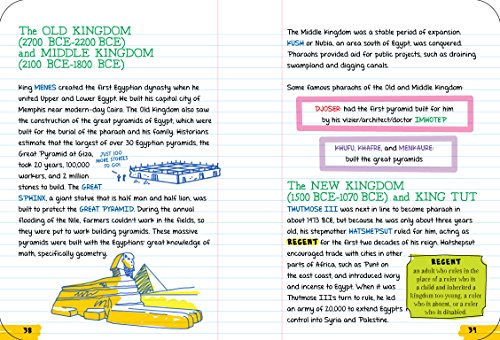 The OLD KINGDOM
(2700 BCE-2200 BCE)
and MIDDLE KINGDOM
(2100 BCE-1800 BCE)
King MENES created the first Egyptian dynasty when he
united Upper and Lower Egypt. He built his capital city of
Memphis near modern-day Cairo. The Old Kingdom also saw
the construction of the great pyramids of Egypt, which were
built for the burial of the pharaoh and his family. Historians
estimate that the largest of over 30 Egyptian pyramids, the
Great Pyramid at Giza,
took 20 years, 100,000
workers, and 2 million
stones to build. The GREAT
JUST 100
MORE STORIES
TO GO!
SPHINX, a giant statue that is half man and half lion, was
built to protect the GREAT PYRAMID. During the annual
flooding of the Nile, farmers couldn't work in the fields, so
they were put to work building pyramids. These massive
pyramids were built with the Egyptians' great knowledge of
math, specifically geometry.
38
The Middle Kingdom was a stable period of expansion.
KUSH or Nubia, an area south of Egypt, was conquered.
Pharaohs provided aid for public projects, such as draining
swampland and digging canals.
Some famous pharaohs of the Old and Middle Kingdom:
DJOSER had the first pyramid built for him
by his vizier/architect/doctor IMHOTEP
KHUFU, KHAFRE, and MENKAURE:
built the great pyramids
The NEW KINGDOM
(1500 BCE-1070 BCE) and KING TUT
THUTMOSE III was next in line to become pharaoh in
about 1473 BCE, but because he was only about three years
old, his stepmother HATSHEPSUT ruled for him, acting as
REGENT for the first two decades of his reign. Hatshepsut
encouraged trade with cities in other
parts of Africa, such as Punt on
the east coast, and introduced ivory
and incense to Egypt. When it was
Thutmose III's turn to rule, he led
an army of 20,000 to extend Egypt's
control into Syria and Palestine.
REGENT
an adult who rules in the
place of a ruler who is
a child and inherited a
kingdom too young, a ruler
who is absent, or a ruler
who is disabled.
39